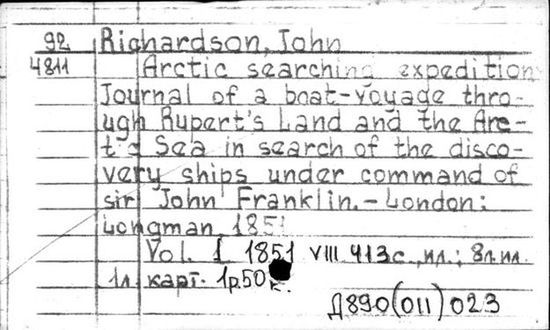 92 Richardson, John
4811 Arctic searching expedition
Journal of a boat-voyage thro-
ugh Rupert's Land and the Arc-
tic Sea in search of the disco-
very ships under command of
sir John Franklin. - London:
Longman, 1851
Vol. 1 1851 VIII 413 с., ил.; 8 л. ил.
1 л. карт. 1р.50к.
Д890(011) 023